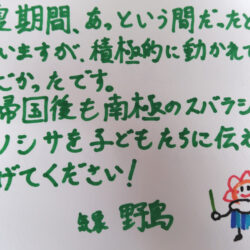 夏期間、あっという間だったと
いますが、積極的に動かれて
ごかったです。
帰国後も南極のスバラシ
ノシサを子どもたちに伝え
げてください!
気象 野島